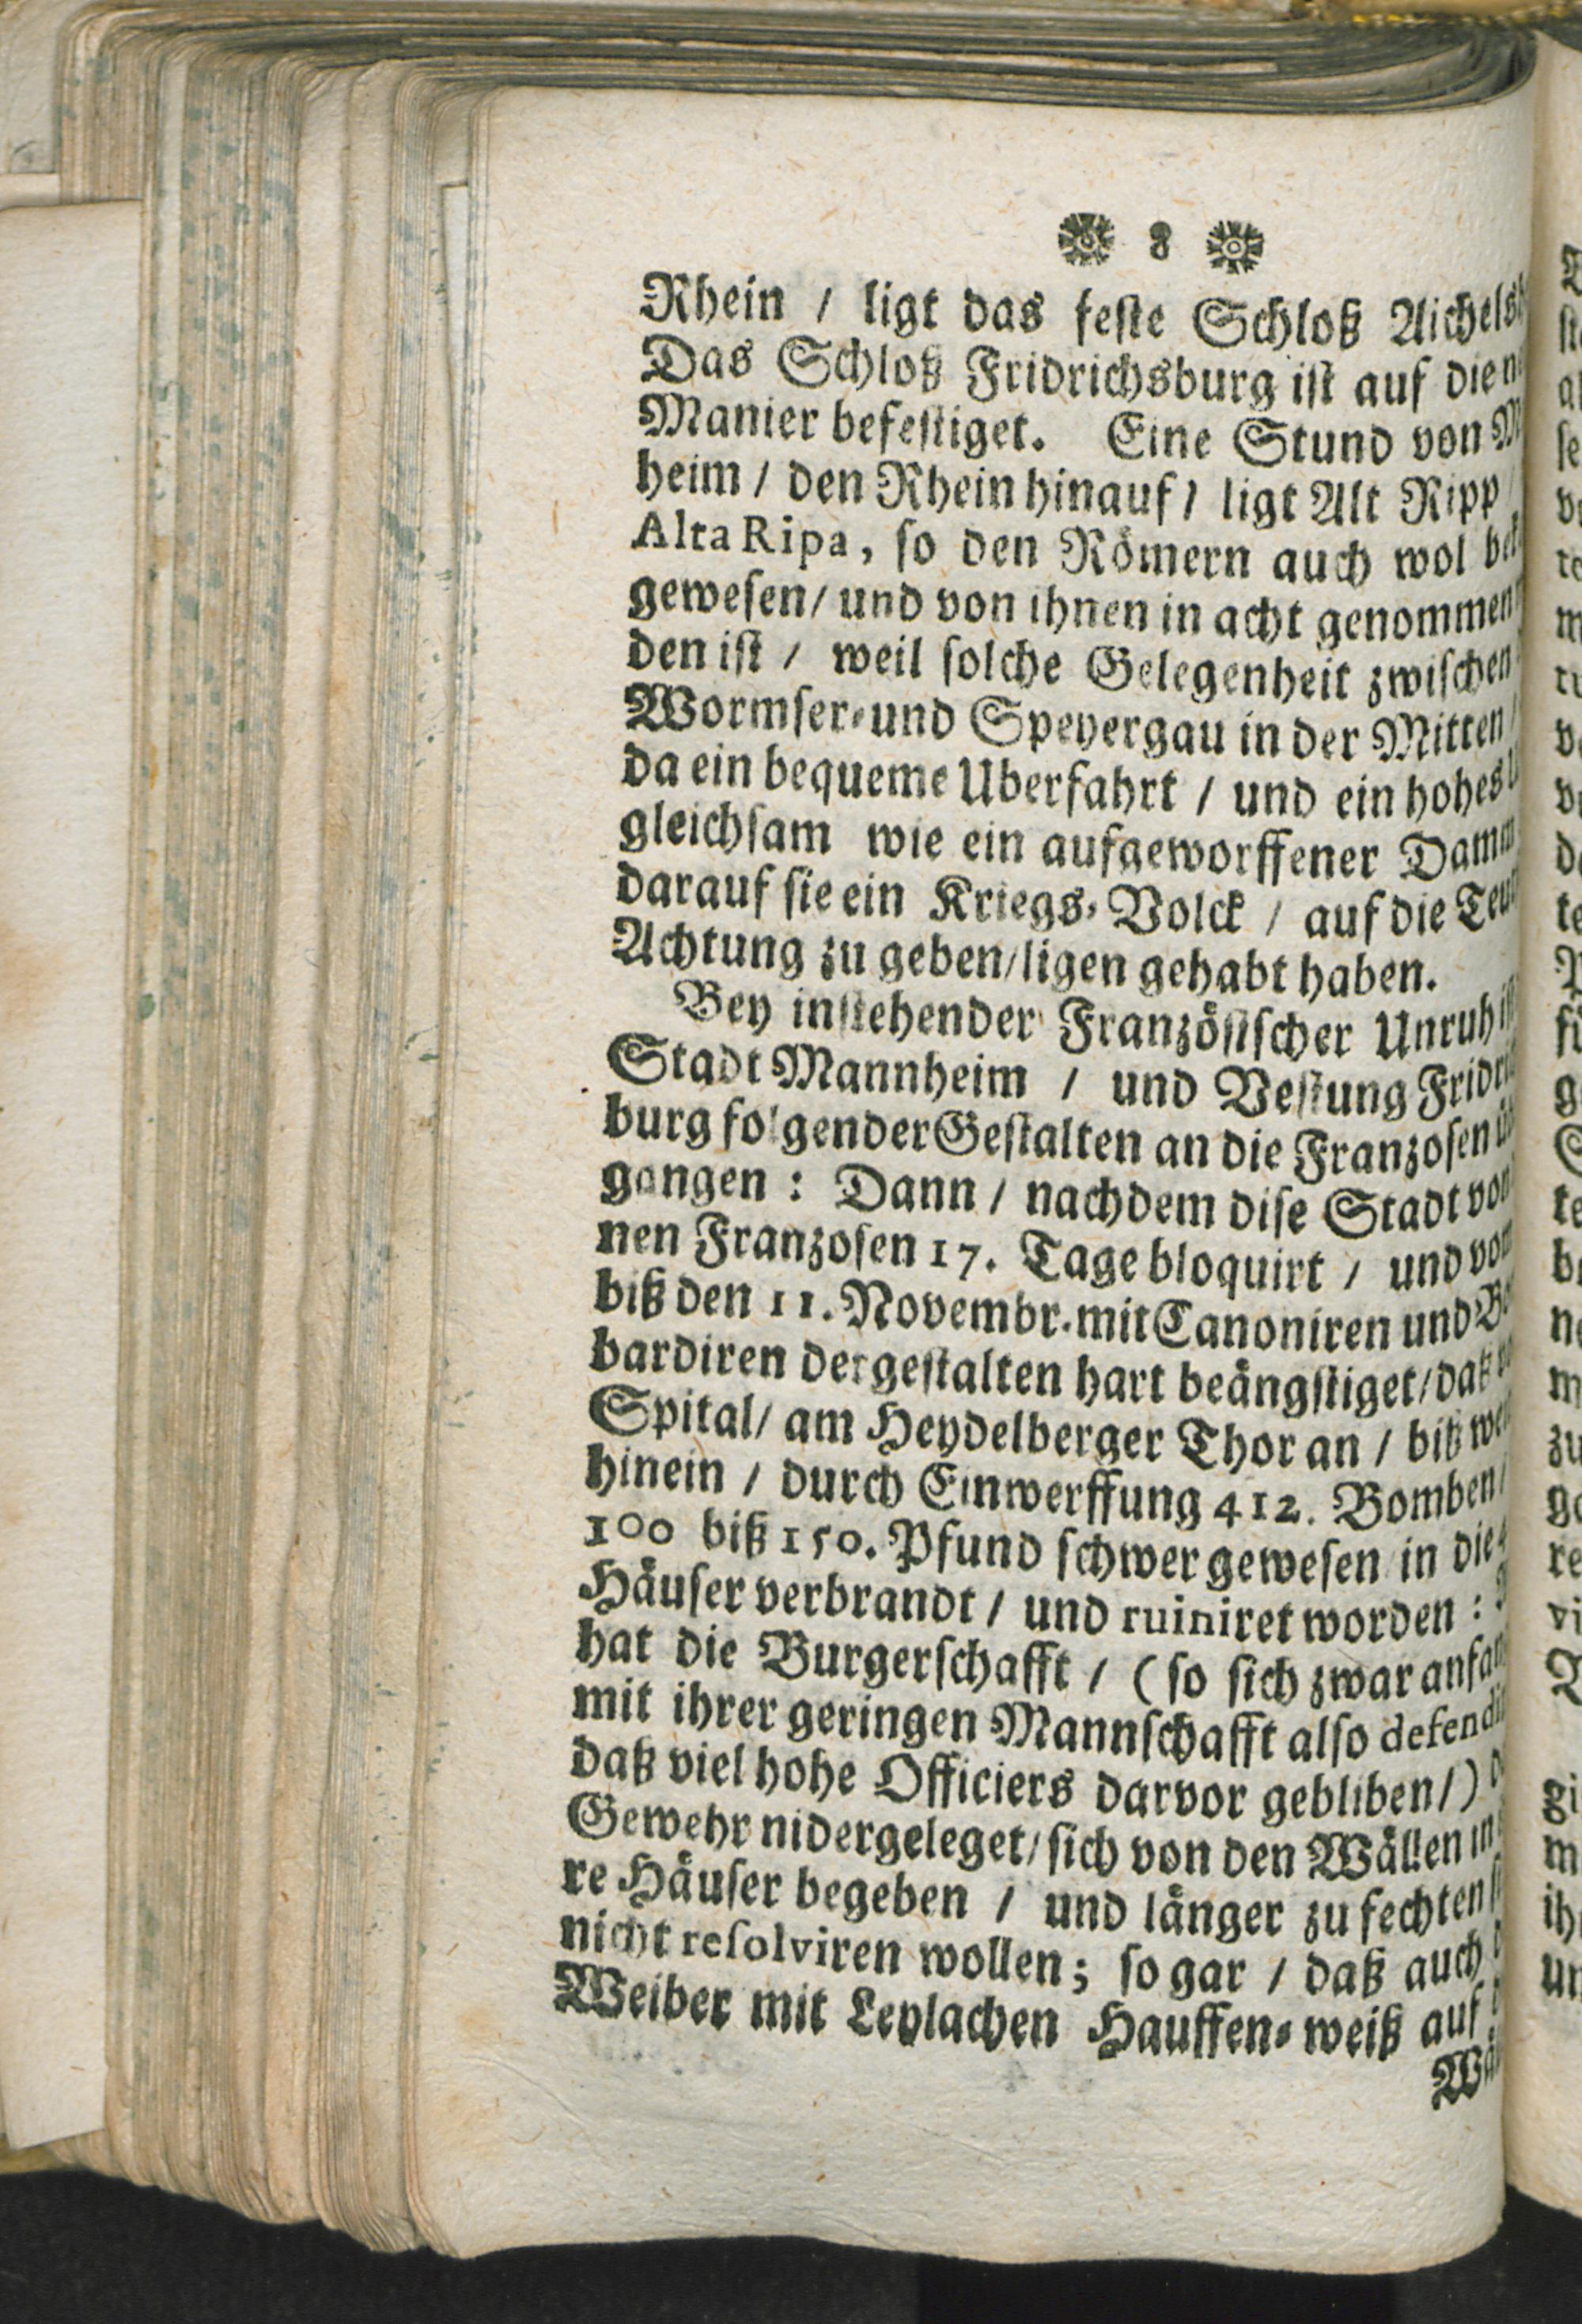 8
Rhein / ligt das feste Schloß
Das Schloß Fridrichsburg ist auf die
Manier befestiget. Eine Stund von
heim / den Rhein hinauf / ligt Alt Ripp
Alta Ripa, so den Römern auch wol
gewesen / und von ihnen in acht genommen
den ist / weil solche Gelegenheit zwischen
Wormser- und Speyergau in der Mitten
da ein bequeme Uberfahrt / und ein hohes
gleichsam wie ein aufgeworffener Damm
darauf sie ein Kriegs-Volck / auf die
Achtung zu geben / ligen gehabt haben.
Bey instehender Französischer Unruh
Stadt Mannheim / und Vestung
burg folgender Gestalten an die Franzosen
gangen : Dann / nachdem dise Stadt von
nen Franzosen 17. Tage bloquirt / und
biß den 11. Novembr. mit Canoniren und
bardiren dergestalten hart beängstiget / daß
Spital / am Heydelberger Thor an / biß
hinein / durch Einwerffung 412. Bomben /
100 biß 150. Pfund schwer gewesen in die
Häuser verbrandt / und ruiniret worden :
hat die Burgerschafft / (so sich zwar
mit ihrer geringen Mannschafft also
daß viel hohe Officiers darvor gebliben /)
Gewehr nidergeleget / sich von den Wällen in
re Häuser begeben / und länger zu fechten
nicht resolviren wollen; so gar / daß auch
Weiber mit Leylachen Hauffen-weiß auf